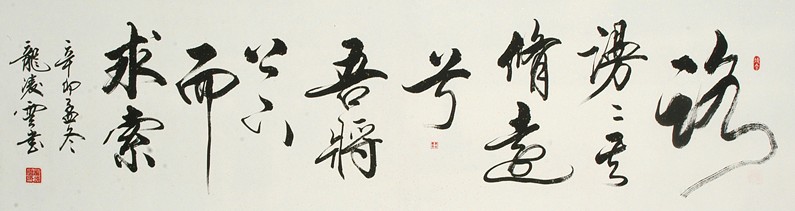 路
漫〻其
脩遠
兮
吾將
上下
而
求索
辛卯孟冬
龍凌雲書